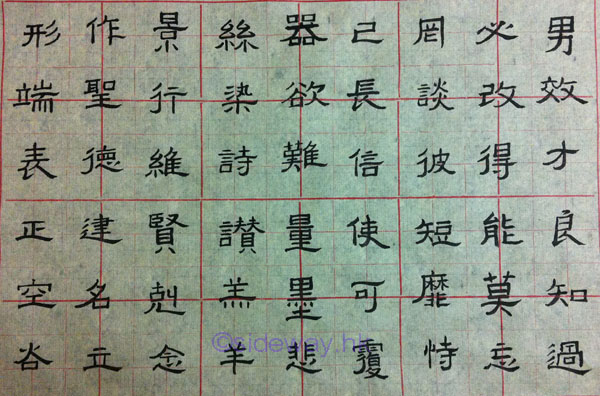 男效才良知過
必改得能莫忘
罔談彼短靡恃
己長信使可覆
器欲難量墨悲
絲染詩讃羔羊
景行維賢剋念
作聖德建名立
形端表正空谷
©sideway.hk